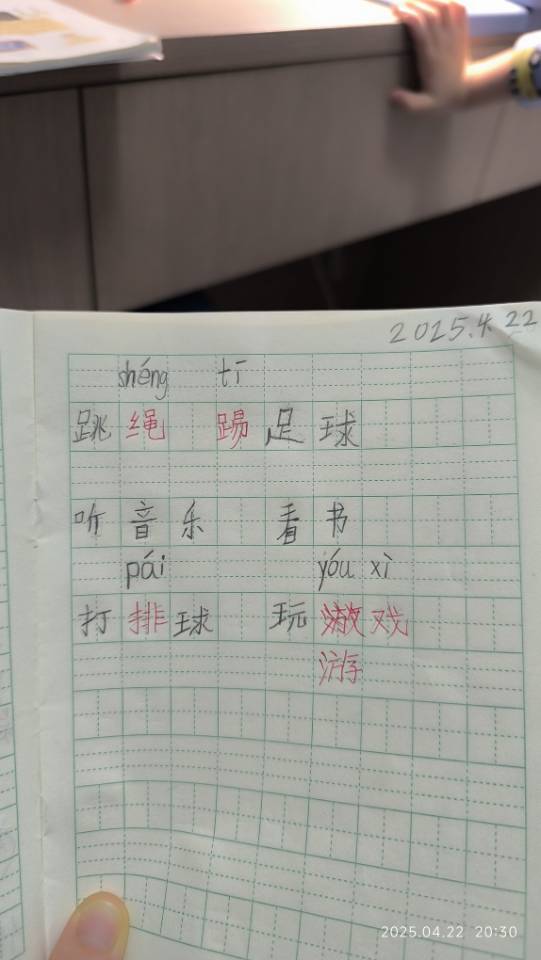 2025.4.22
shéng tī
跳绳 踢足球
听音乐 看书
pái yóu xì
打排球 玩戏
游
2025.04.22 20:30